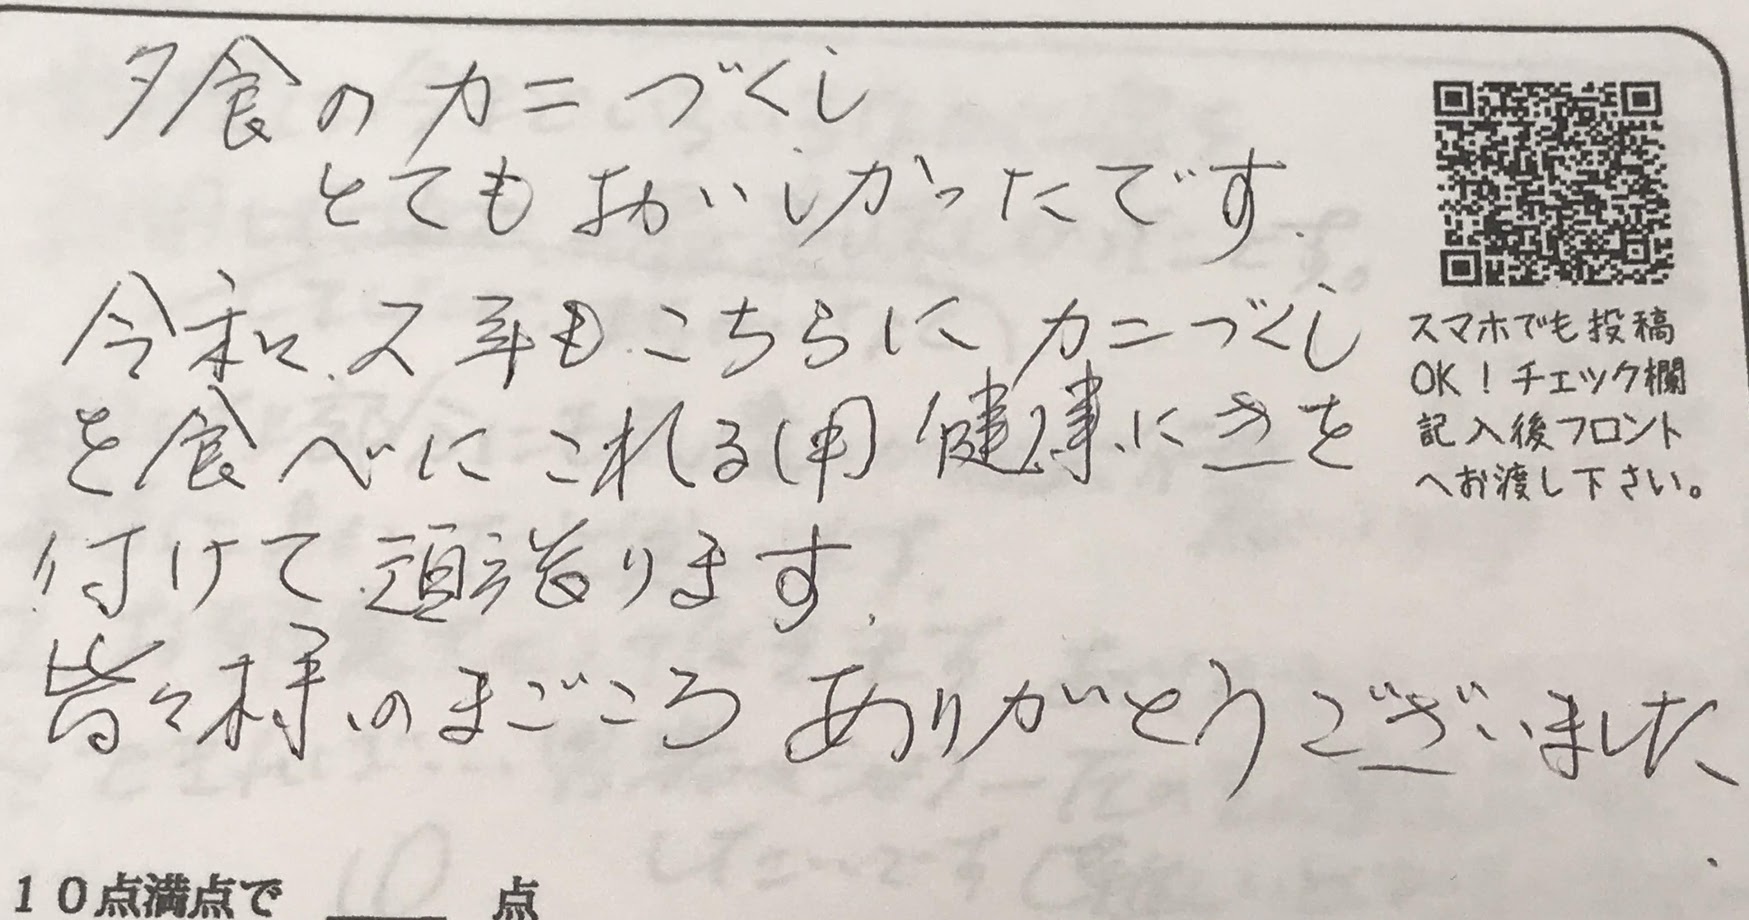 夕食のカニづくし
とてもおいしかったです.
令和2年もこちらにカニづくし
を食べにこれる 健康に きを
付けて 頑張ります.
皆々様のまごころ ありがとうございました.
スマホでも投稿
OK！チェック欄
記入後フロント
へお渡し下さい。
10点満点で 10 点